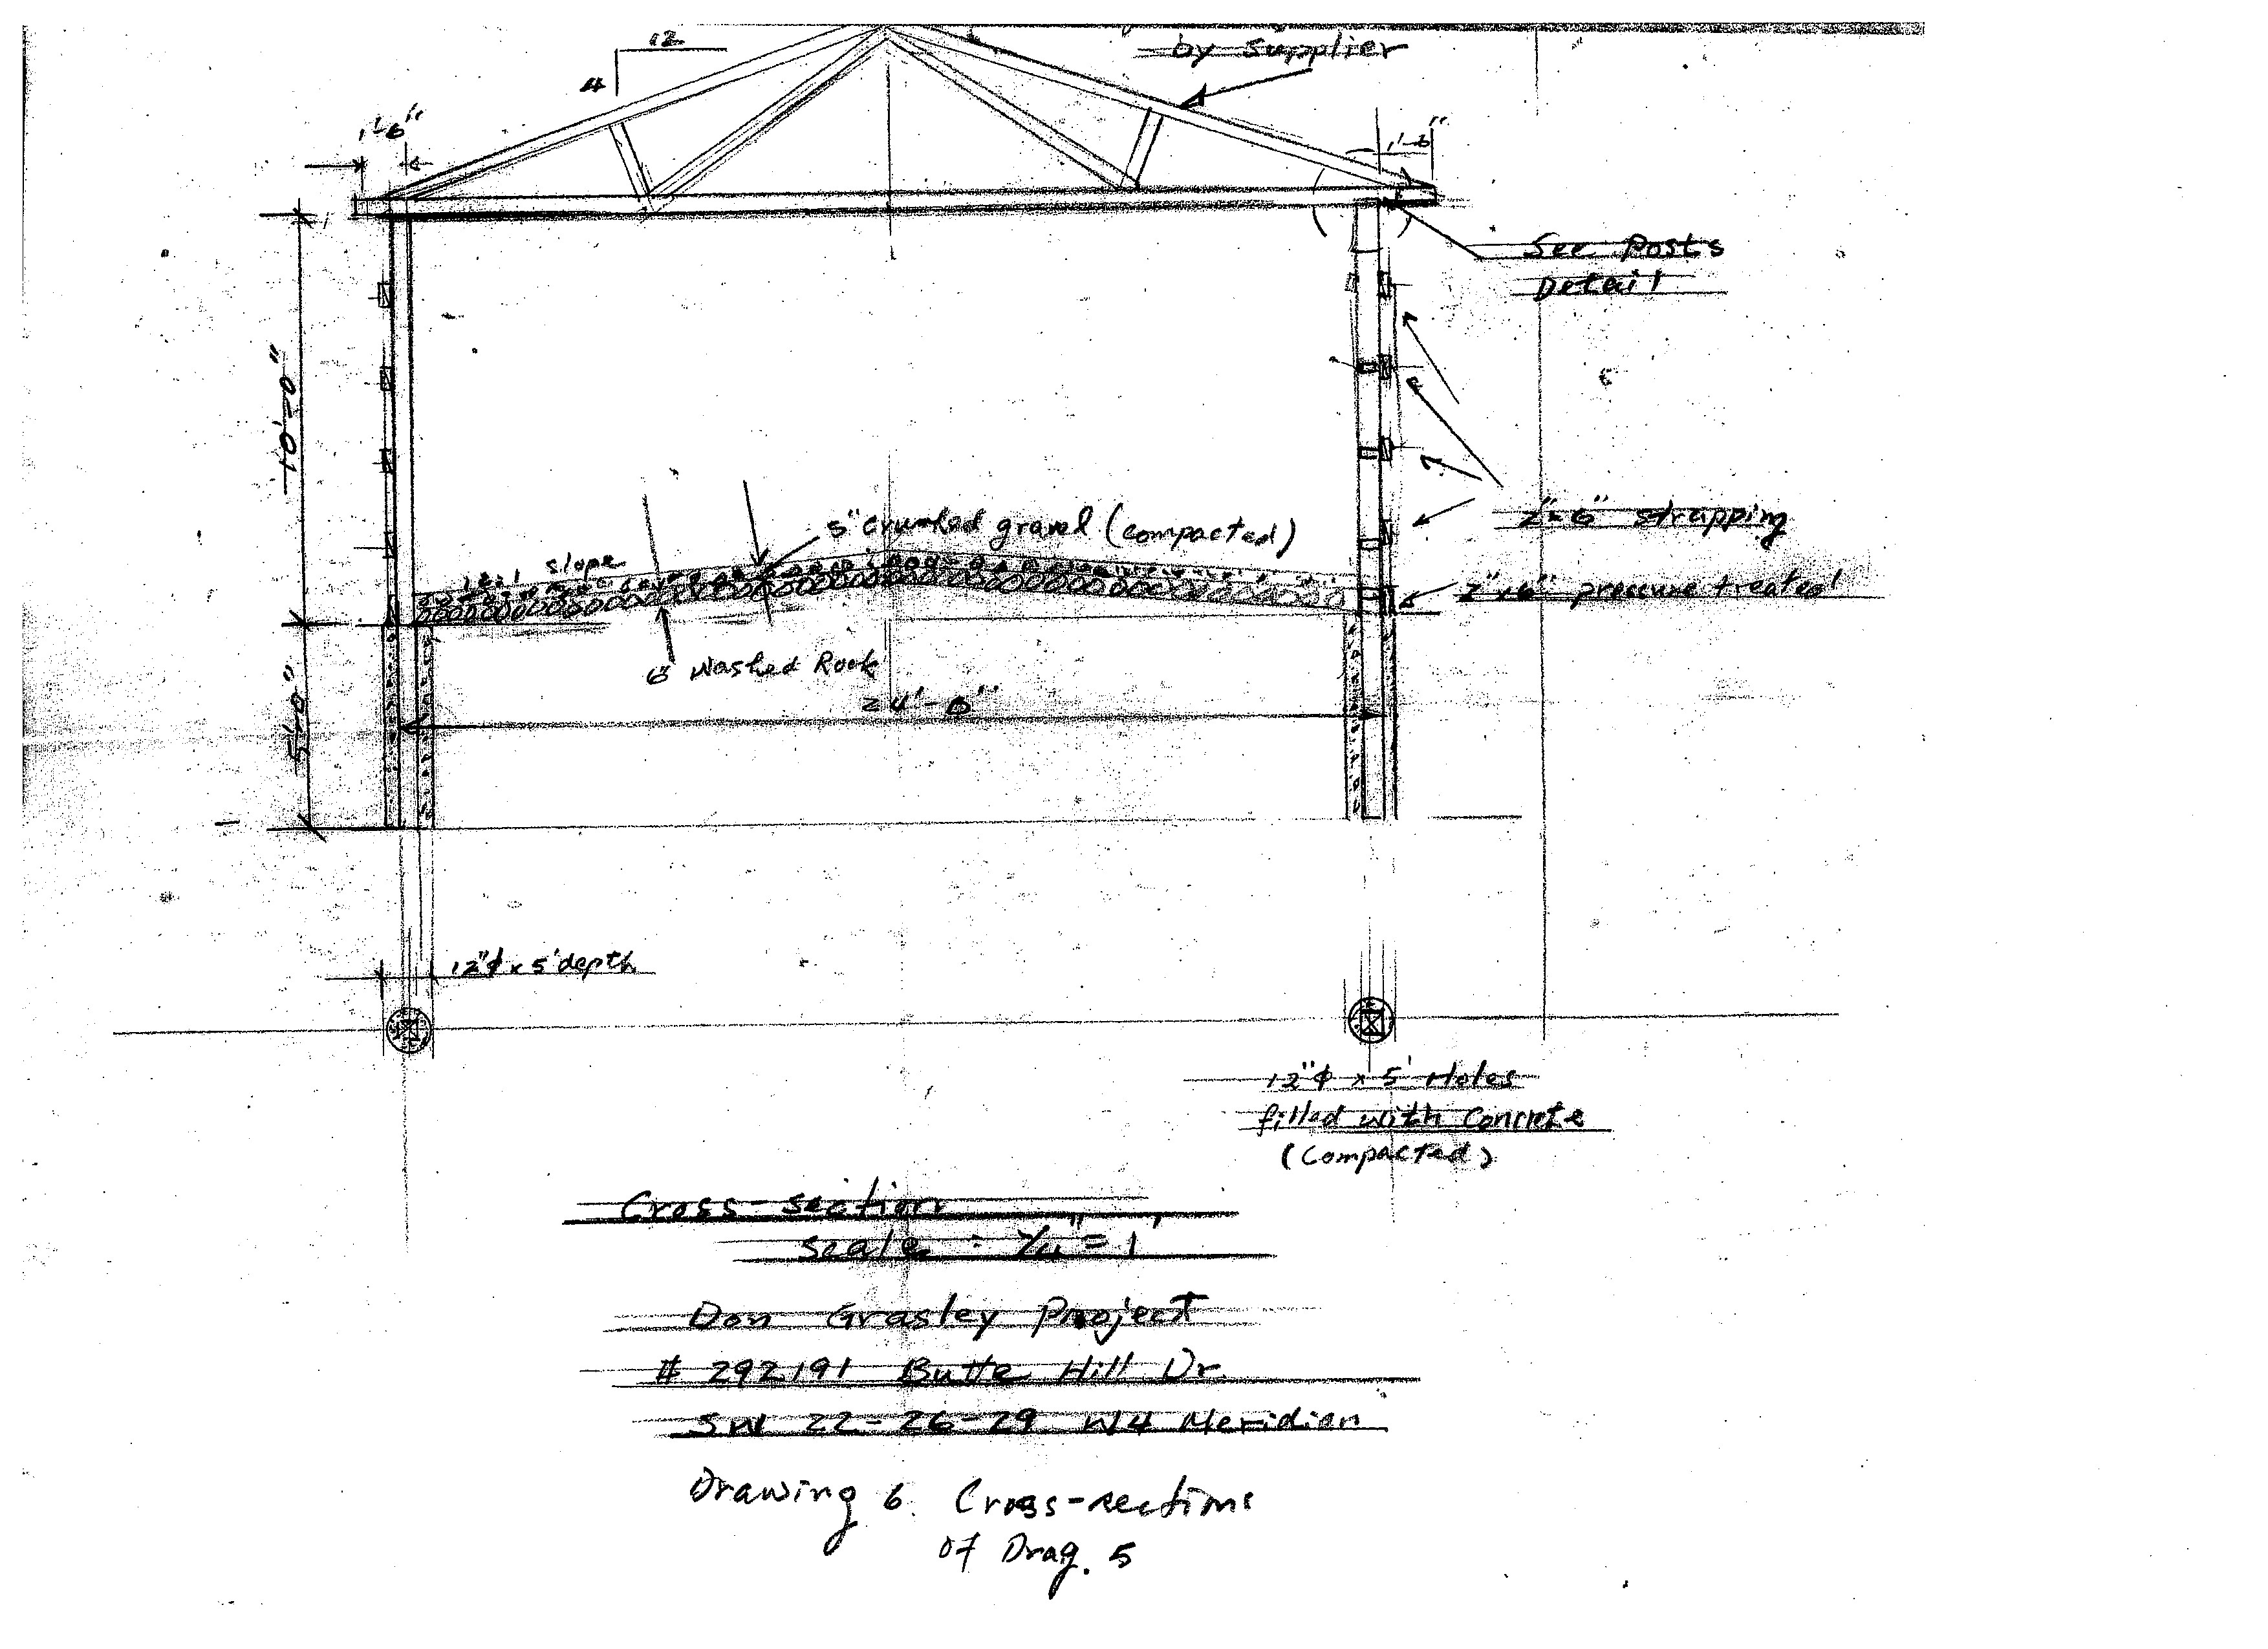 12
by supplier
4
1'-6"
1'-6"
See Posts
Detail
10'-0"
5" Crushed gravel (compacted)
slope
2"x6" strapping
2"x6" pressure treated
6" Washed Rock
24'-0"
5'-0"
12"ϕ x 5' depth
12"ϕ x 5' Holes
filled with Concrete
(Compacted)
Cross-section
scale : 1/4" = 1'
Don Grasley Project
# 292191 Butte Hill Dr.
SW 22-26-29 W4 Meridian
Drawing 6. Cross-sections
of Drag. 5